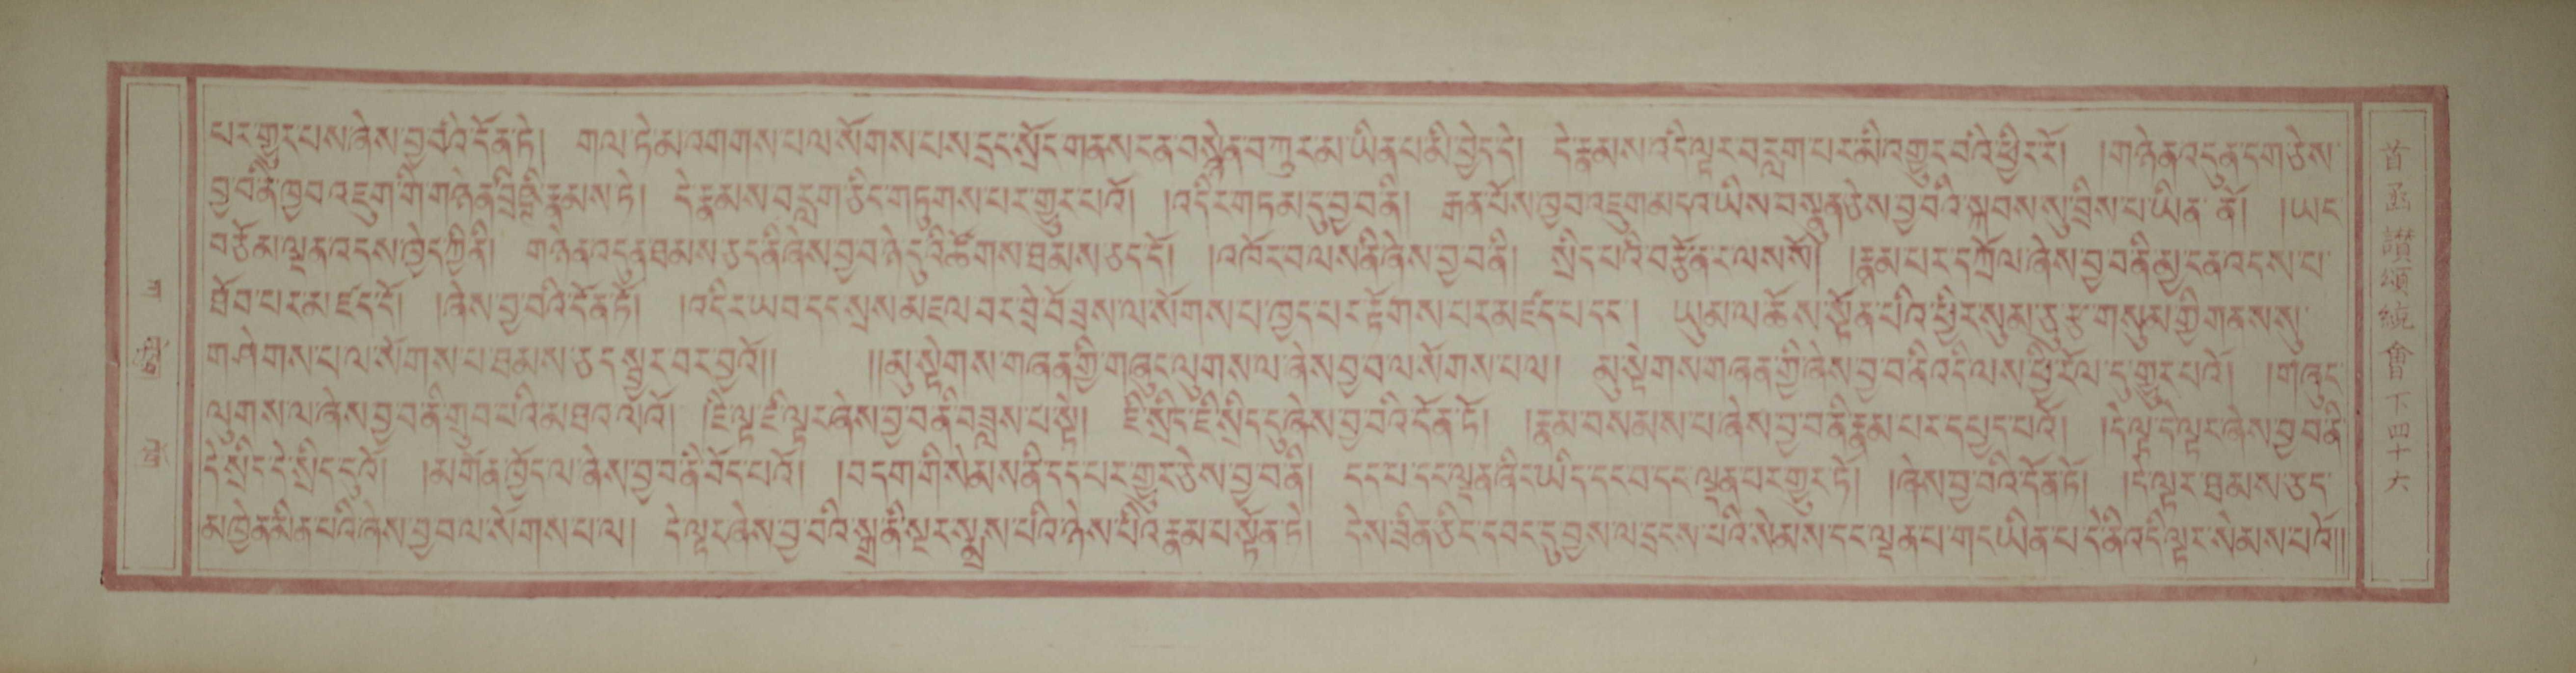 པར་གྱུར་པས་ཞེས་བྱ་བའི་དོན་ཏེ། གལ་ཏེ་མ་འགགས་པ་ལ་སོགས་པས་དྲང་སྲོང་གནས་ངན་བསྙེན་བཀུར་མ་ཡིན་པ་མི་བྱེད་དེ། དེ་རྣམས་འདི་ལྟར་བརླག་པར་མི་འགྱུར་བའི་ཕྱིར་རོ། །གཉེན་འདུན་དག་ཅེས་
བྱ་བ་ནི་ཁྱབ་འཇུག་གི་གཉེན་བྲིཥྞི་རྣམས་ཏེ། དེ་རྣམས་བརླག་ཅིང་གཏུགས་པར་གྱུར་པའོ། །འདིར་གཏམ་དུ་བྱ་བ་ནི། རྒན་པོས་ཁྱབ་འཇུག་མདའ་ཡིས་བསྣུན་ཅེས་བྱ་བའི་སྐབས་སུ་བྲིས་པ་ཡིན་ནོ། །ཡང་
བཅོམ་ལྡན་འདས་ཁྱེད་ཀྱི་ནི། གཉེན་འདུན་ཐམས་ཅད་ནི་ཞེས་བྱ་བ་ཉེ་དུའི་ཚོགས་ཐམས་ཅད་དོ། །འཁོར་བ་ལས་ནི་ཞེས་བྱ་བ་ནི། སྲིད་པའི་བཙོན་ར་ལས་སོ། །རྣམ་པར་དཀྲོལ་ཞེས་བྱ་བ་ནི་མྱ་ངན་འདས་པ་
ཐོབ་པར་མཛད་དོ། །ཞེས་བྱ་བའི་དོན་ཏོ། །འདིར་ཡབ་དང་སྲས་མཇལ་བར་བྲེ་བོ་ཟས་ལ་སོགས་པ་ཁྱད་པར་རྟོགས་པར་མཛད་པ་དང་། ཡུམ་ལ་ཆོས་སྟོན་པའི་ཕྱིར་སུམ་ཅུ་རྩ་གསུམ་གྱི་གནས་སུ་
གཤེགས་པ་ལ་སོགས་པ་ཐམས་ཅད་སྦྱར་བར་བྱའོ།། །།མུ་སྟེགས་གཞན་གྱི་གཞུང་ལུགས་ལ་ཞེས་བྱ་བ་ལ་སོགས་པ་ལ། མུ་སྟེགས་གཞན་གྱི་ཞེས་བྱ་བ་ནི་འདི་ལས་ཕྱི་རོལ་དུ་གྱུར་པའོ། །གཞུང་
ལུགས་ལ་ཞེས་བྱ་བ་ནི་གྲུབ་པའི་མཐའ་ལའོ། །ཇི་ལྟ་ཇི་ལྟར་ཞེས་བྱ་བ་ནི་བཟླས་པ་སྟེ། ཇི་སྲིད་ཇི་སྲིད་དུ་ཞེས་བྱ་བའི་དོན་ཏོ། །རྣམ་བསམས་པ་ཞེས་བྱ་བ་ནི་རྣམ་པར་དཔྱད་པའོ། །དེ་ལྟ་དེ་ལྟར་ཞེས་བྱ་བ་ནི་
དེ་སྲིད་དེ་སྲིད་དུའོ། །མགོན་ཁྱོད་ལ་ཞེས་བྱ་བ་ནི་བོད་པའོ། །བདག་གི་སེམས་ནི་དད་པར་གྱུར་ཅེས་བྱ་བ་ནི། དད་པ་དང་ལྡན་ཞིང་ཡིད་དང་བ་དང་ལྡན་པར་གྱུར་ཏོ། །ཞེས་བྱ་བའི་དོན་ཏོ། །དེ་ལྟར་ཐམས་ཅད་
མ་ཁྱེན་མིན་པའི་ཞེས་བྱ་བ་ལ་སོགས་པ་ལ། དེ་ལྟར་ཞེས་བྱ་བའི་སྒྲ་ནི་སྔར་སྨྲས་པའི་ཉེས་པའི་རྣམ་པ་སྟོན་ཏེ། དེས་ཟིན་ཅིང་དབང་དུ་བྱས་ལ་དྲངས་པའི་སེམས་དང་ལྡན་པ་གང་ཡིན་པ་དེ་ནི་འདི་ལྟར་སེམས་པའོ།།
首函 讚頌統會 下四十六